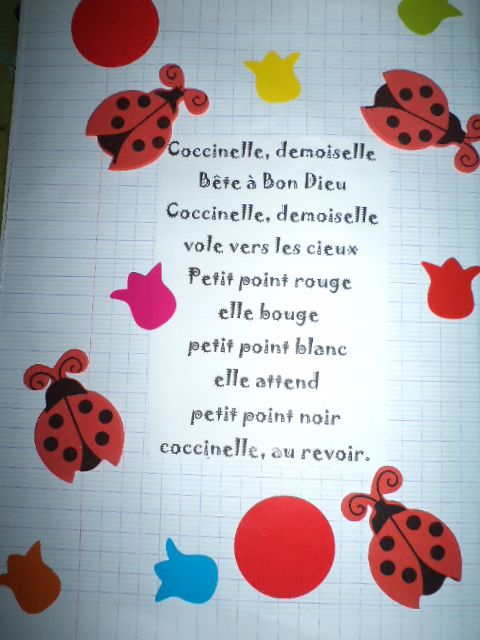 Coccinelle, demoiselle
Bête à Bon Dieu
Coccinelle, demoiselle
vole vers les cieux
Petit point rouge
elle bouge
petit point blanc
elle attend
petit point noir
coccinelle, au revoir.